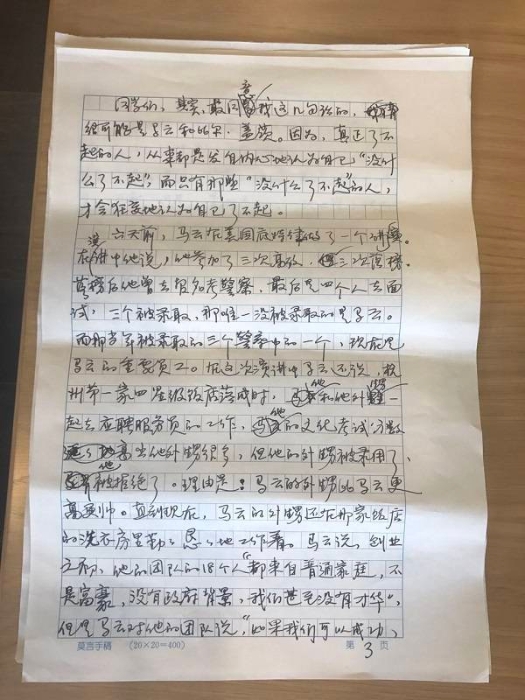 同学们，其实，最同意我这几句话的，
很可能是马云和比尔·盖茨。因为，真正了不
起的人，从来都是发自内心地认为自己“没什
么了不起”，而只有那些“没什么了不起”的人，
才会狂妄地认为自己了不起。
六天前，马云在美国底特律做了一个演讲。
在演讲中他说，他参加了三次高考，三次落榜。
落榜后他曾去报名考警察，最后是四个人去面
试，三个被录取，那唯一没被录取的是马云。
而那当年被录取的三个警察中的一个，现在是
马云的重要员工。在这次演讲中马云还说，杭
州第一家四星级饭店落成时，他和他外甥一
起去应聘服务员的工作，他的文化考试分数
高出他外甥很多，但他的外甥被录用了，
他被拒绝了。理由是：马云的外甥比马云更
高更帅。直到现在，马云的外甥还在那家饭店
的洗衣房里勤勤恳恳地工作着。马云说，创业
之初，他的团队的18个人“都来自普通家庭，不
是富豪，没有政府背景，我们甚至没有才华”，
但是马云对他的团队说，“如果我们可以成功，
莫言手稿 (20×20=400) 第 3 页